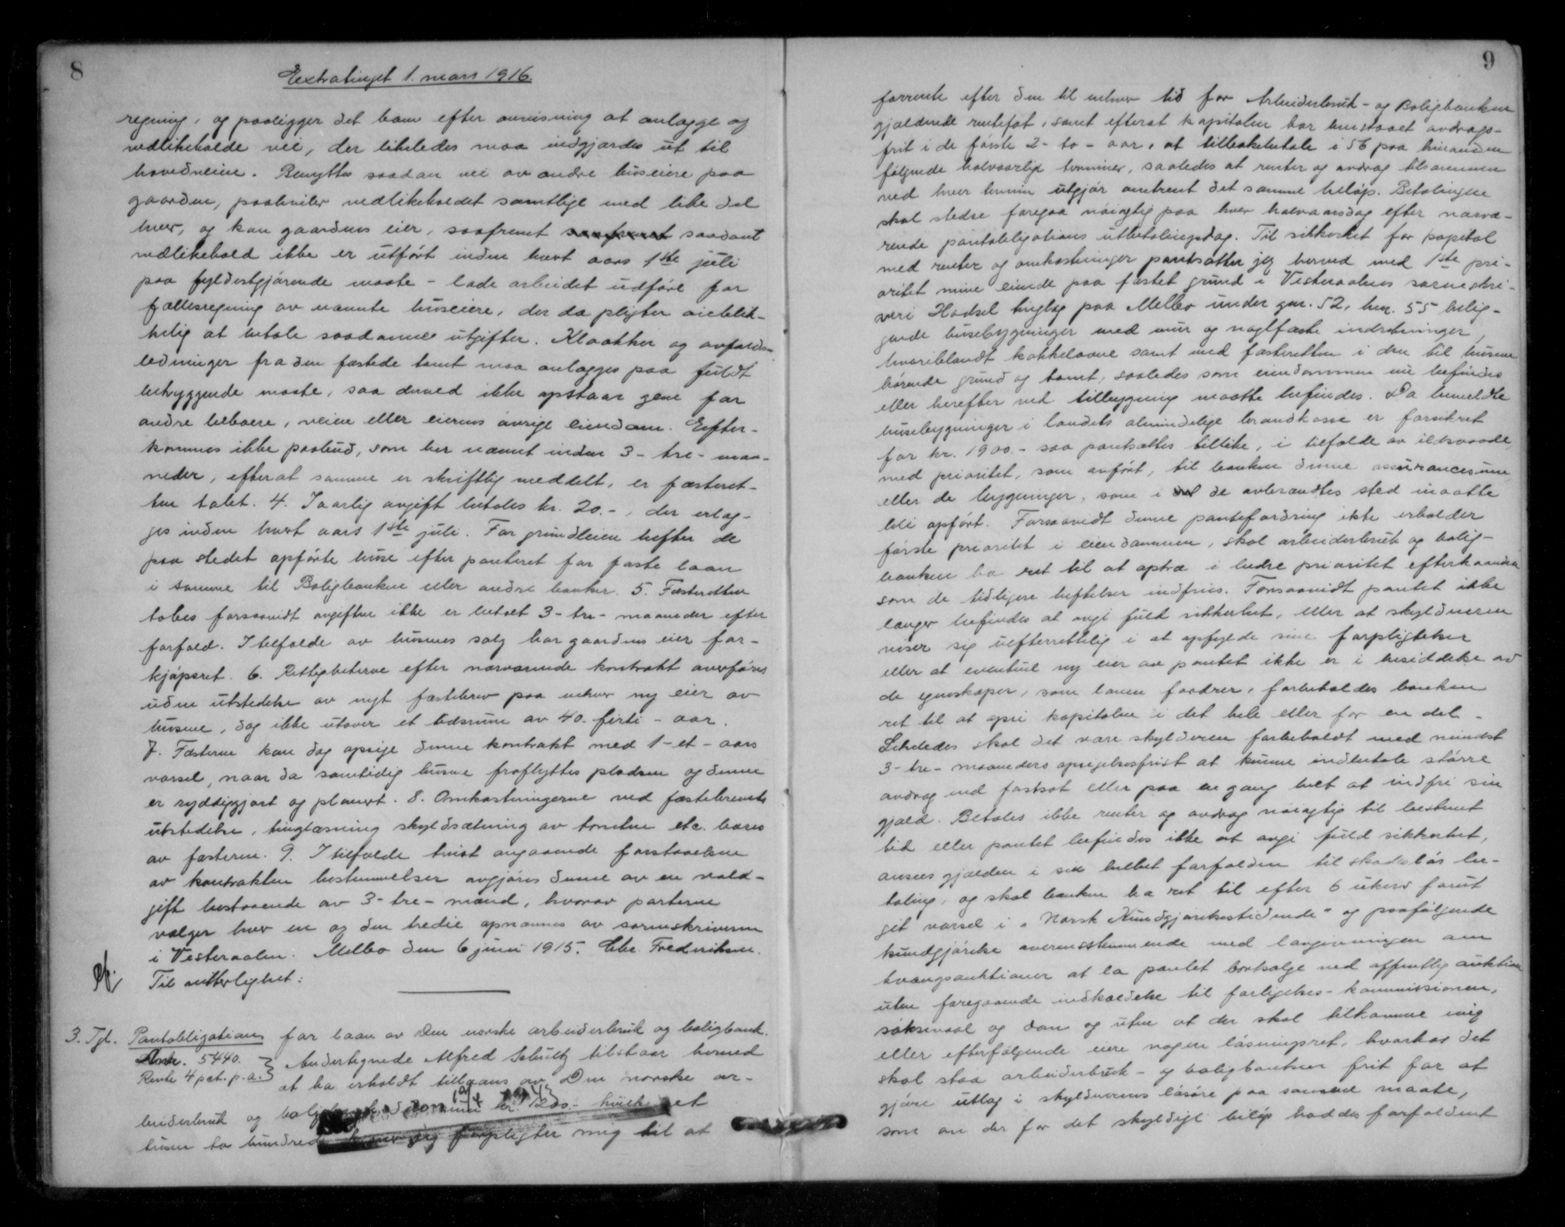 8
Extratinget 1. mars 1916.
regning, og paaligger det ham efter anvisning at anlægge og
vedlikeholde vei, der likeledes maa indgjærdes ut til
hovedveien. Benyttes saadan vei av andre huseiere paa
gaarden, paahviler vedlikeholdet samtlige med like del
hver, og kan gaardens eier, saafremt saadant
vedlikehold ikke er utført inden hvert aars 1ste juli
paa fyldestgjørende maate - lade arbeidet utføre for
fællesregning av nævnte huseiere, der da pligter
at betale saadanne utgifter. Kloakker og avfalds-
ledninger fra den fæstede tomt maa anlægges paa fuldt
betryggende maate, saa derved ikke opstaar gene for
andre beboere, veien eller eierens øvrige eiendom. Efter-
kommes ikke paabud, som her nævnt inden 3 - tre - maa-
neder, efterat samme er skriftlig meddelt, er fæsteret-
ten tabt. 4. I aarlig avgift betales kr. 20.-, der erlæg-
ges inden hvert aars 1ste juli. For grundleien hefter de
paa stedet opførte huse efter panteret for faste laan
i samme til Boligbanken eller andre banker. 5. Fæsteretten
tabes forsaavidt avgiften ikke er betalt 3 - tre - maaneder efter
forfald. I tilfælde av husenes salg har gaardens eier for-
kjøpsret. 6. Rettigheterne efter nærværende kontrakt overføres
uden utstedelse av nyt fæstebrev paa enhver ny eier av
husene, dog ikke utover et tidsrum av 40. firti - aar.
7. Fæsteren kan dog opsige denne kontrakt med 1 - et - aars
varsel, naar da samtidig husene fraflyttes pladsen og denne
er ryddiggjort og planert. 8. Omkostningerne ved fæstebrevets
utstedelse, tinglæsning skyldsætning av tomten etc. bæres
av fæsteren. 9. I tilfælde tvist angaaende forstaaelsen
av kontraktens bestemmelser avgjøres denne av en vold-
gift bestaaende av 3 - tre - mænd, hvorav parterne
vælger hver en og den tredie opnævnes av sorenskriveren
i Vesteraalen. Melbo den 6 juni 1915. Chr. Frederiksen.
Til vitterlighet:
3. Tgl. Pantobligation for laan av Den norske arbeiderbruk og boligbank.
5440. Undertegnede Alfred Schultz tilstaar herved
Rente 4 pct. p.a. at ha erholdt tillaans av Den norske ar-
beiderbruk og
tusen to hundrede forpligter mig til at
9
forrente efter den til enhver tid for Arbeiderbruk- og Boligbanken
gjældende rentefot, samt efterat kapitalen har henstaaet avdrags-
frit i de første 2 - to - aar, at tilbakebetale i 56 paa hinanden
følgende halvaarlige terminer, saaledes at renter og avdrag tilsammen
ved hver termin utgjør omtrent det samme beløp. Betalingen
skal stedse foregaa nøiagtig paa hver halvaarsdag efter nærvæ-
rende pantobligations utbetalingsdag. Til sikkerhet for kapital
med renter og omkostninger pantsætter jeg herved med 1ste pri-
oritet mine eiende paa fæstet grund i Vesteraalens sorenskri-
veri Hadsel tinglag paa Melbo under gnr. 52, bnr. 55 belig-
gende husebygninger med mur og naglfaste indretninger,
hvoriblandt kakkelovne samt med fæsteretten i den til husene
hørende grund og tomt, saaledes som eiendommen nu befindes
eller herefter ved tilbygning maatte befindes. Da bemeldte
husebygninger i landets almindelige brandkasse er forsikret
for kr. 1900.- saa pantsættes tillike, i tilfælde av ildsvaade,
med prioritet, som anført, til banken denne assurancesum
eller de bygninger, som i de avbrændtes sted maatte
bli opført. Forsaavidt denne pantefordring ikke erholder
første prioritet i eiendommen, skal arbeiderbruk og bolig-
banken ha ret til at optræ i bedre prioritet efterhaanden
som de tidligere heftelser indfries. Forsaavidt pantet ikke
længer befindes at avgi fuld sikkerhet, eller at skyldneren
viser sig uefterrettelig i at opfylde sine forpligtelser
eller at eventuel ny eier av pantet ikke er i besiddelse av
de egenskaper, som loven fordrer, forbeholdes banken
ret til at opsi kapitalen i det hele eller for en del.
Ligeledes skal det være skyldneren forbeholdt med mindst
3 - tre - maaneders opsigelsesfrist at kunne indbetale større
avdrag end fastsat eller paa en gang helt at indfri sin
gjæld. Betales ikke renter og avdrag nøiagtig til bestemt
tid eller pantet befindes ikke at avgi fuld sikkerhet,
ansees gjælden i sin helhet forfalden til skadesløs be-
taling, og skal banken ha ret til efter 6 ukers forut
git varsel i "Norsk Kundgjørelsestidende" og paafølgende
kundgjørelse overensstemmende med lovgivningen om
tvangsauktioner at la pantet bortsælge ved offentlig auktion
uten foregaaende indkaldelse til forligelses-kommissionen,
søksmaal og dom og uten at der skal tilkomme mig
eller efterfølgende eiere nogen løsningsret, hvorhos det
skal staa arbeiderbruk- og boligbanken frit for at
gjøre utlæg i skyldnerens løsøre paa samme maate,
som om der for det skyldige beløp hadde forfaldent